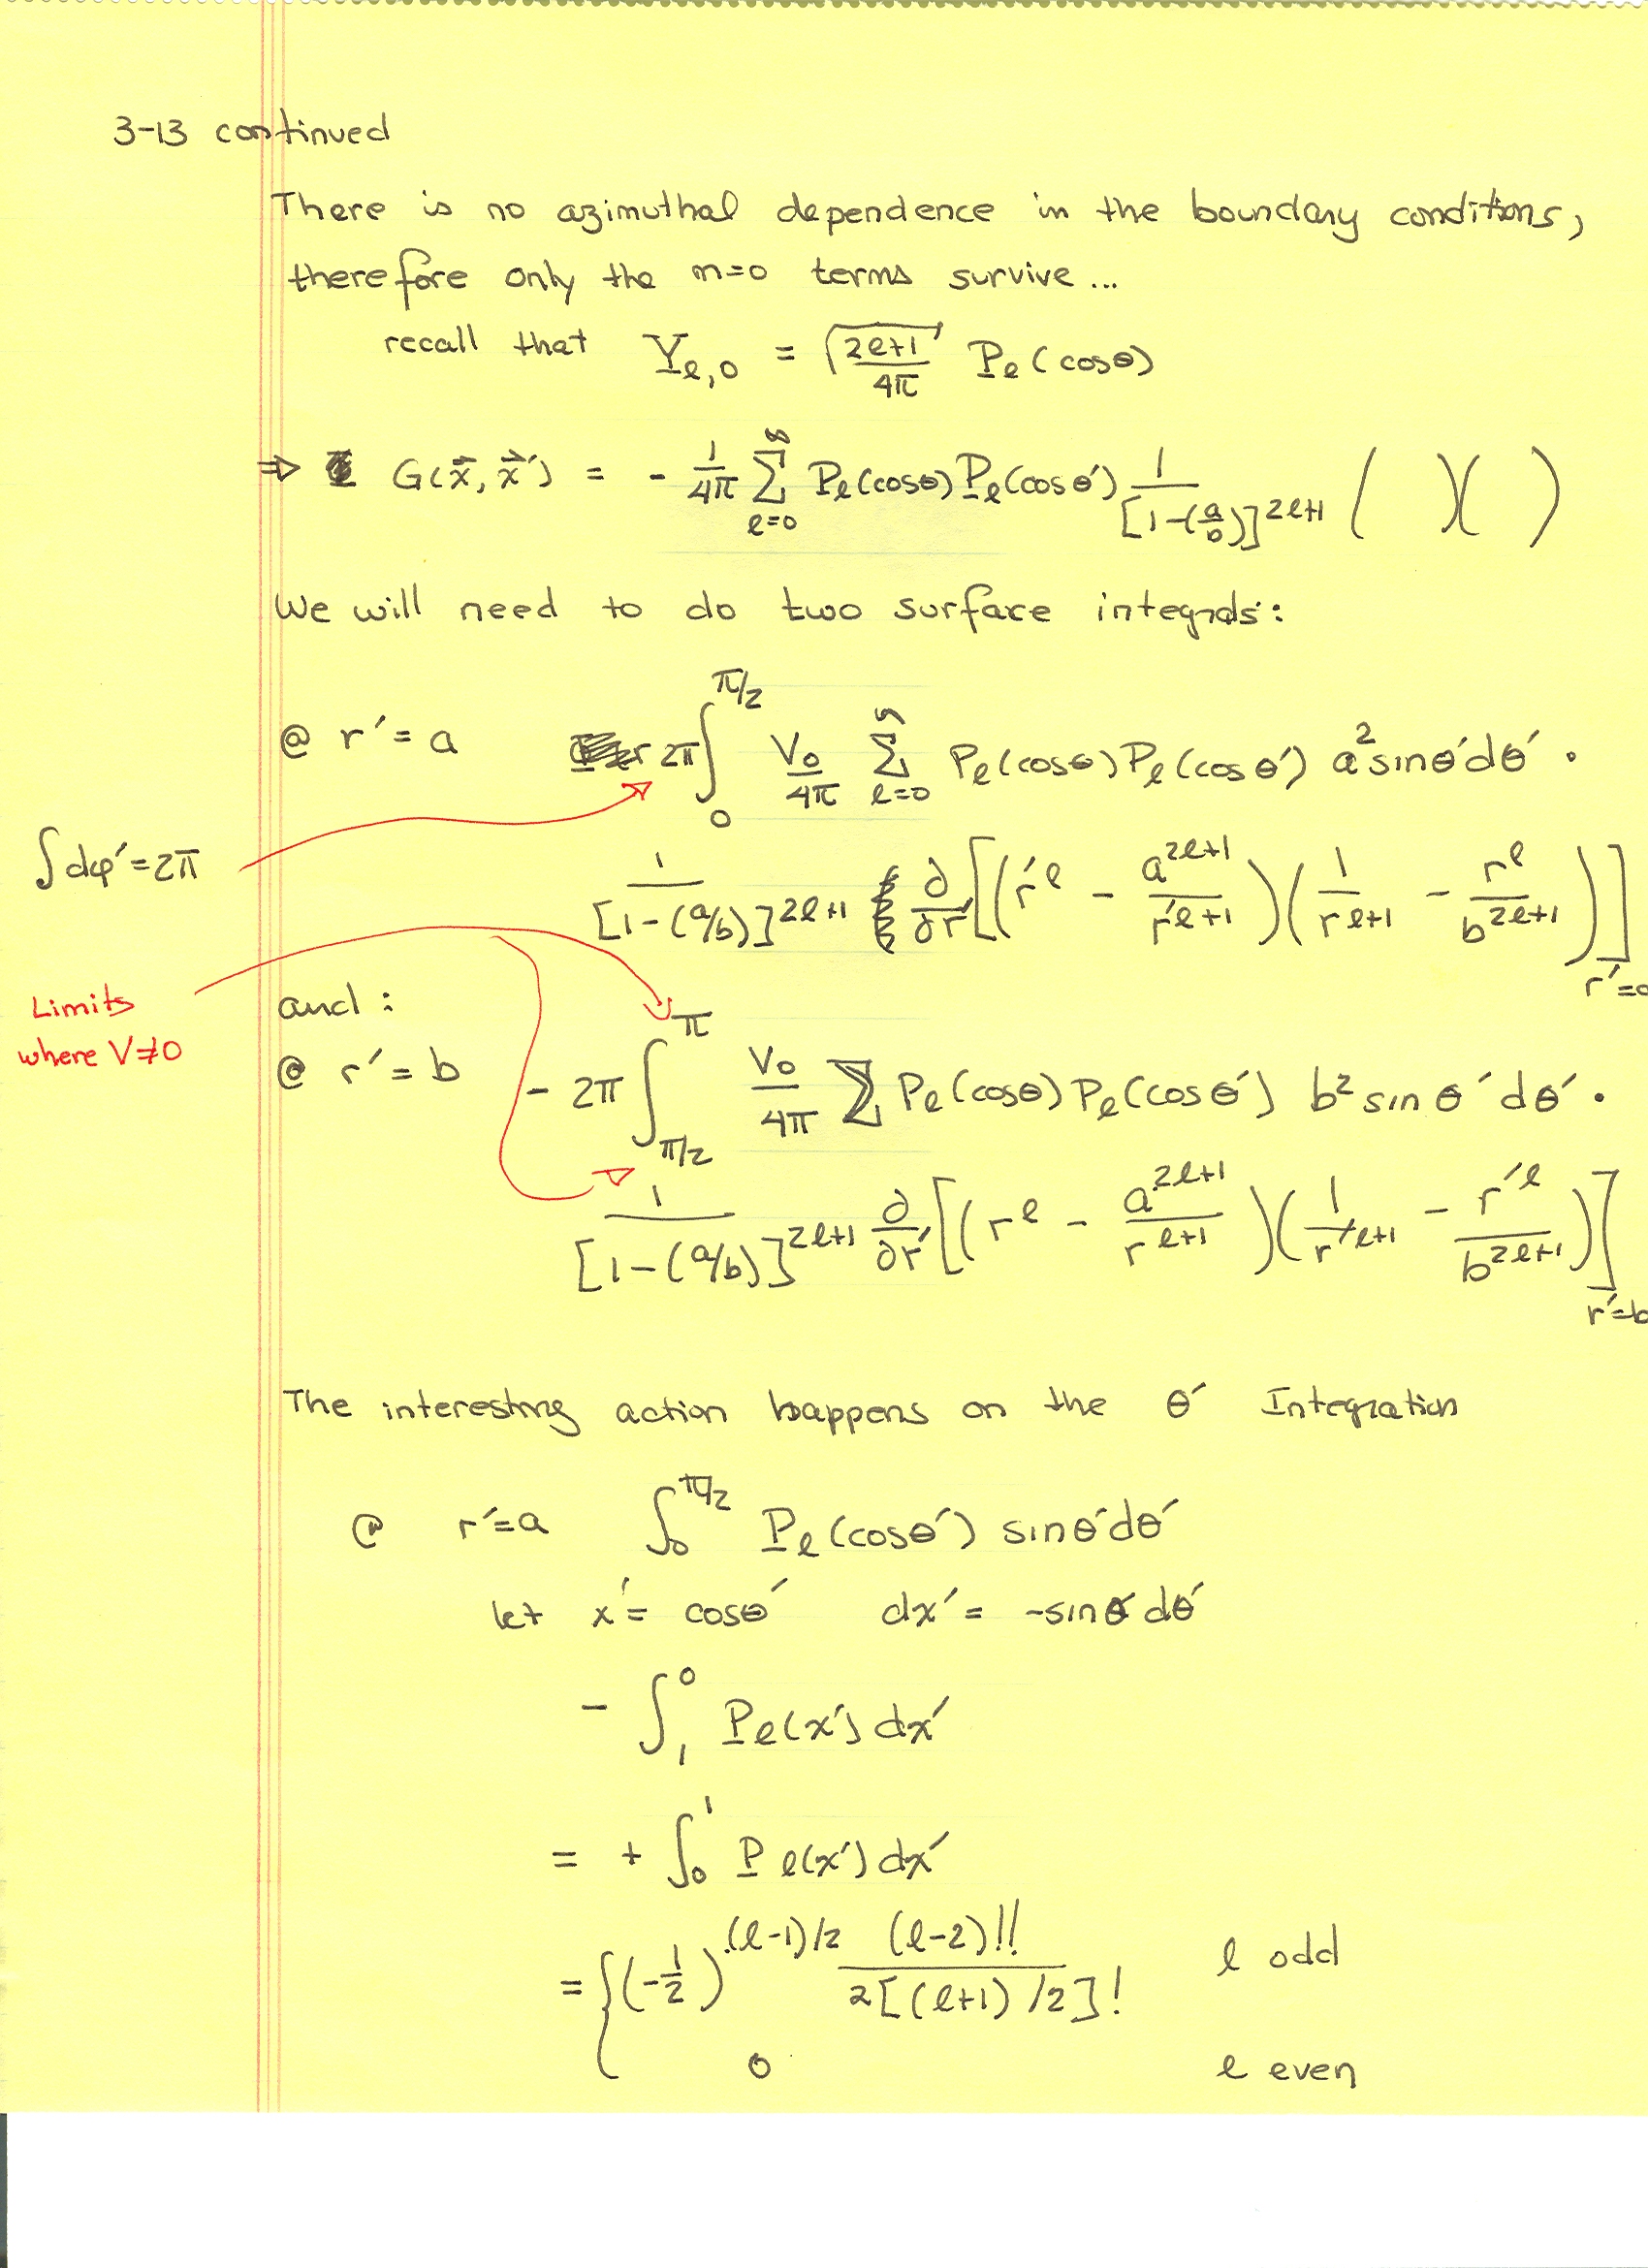 3-13 continued
There is no azimuthal dependence in the boundary conditions,
therefore only the m=0 terms survive...
recall that Y_{ℓ,0} = √((2ℓ+1)/4π) P_ℓ(cosθ)
⇒ G(x⃗, x⃗') = - 1/4π Σ_{ℓ=0}^{∞} P_ℓ(cosθ) P_ℓ(cosθ') 1/[1-(a/b)]^{2ℓ+1} ( )( )
We will need to do two surface integrals:
@ r'=a 2π ∫_0^{π/2} V_0/4π Σ_{ℓ=0}^{∞} P_ℓ(cosθ) P_ℓ(cosθ') a² sinθ'dθ' ·
∫dφ'=2π
1/[1-(a/b)]^{2ℓ+1} ∂/∂r' [(r'^ℓ - a^{2ℓ+1}/r'^{ℓ+1})(1/r^{ℓ+1} - r^ℓ/b^{2ℓ+1})]_{r'=a}
Limits
where V≠0
and:
@ r'=b - 2π ∫_{π/2}^{π} V_0/4π Σ P_ℓ(cosθ) P_ℓ(cosθ') b² sinθ'dθ' ·
1/[1-(a/b)]^{2ℓ+1} ∂/∂r' [(r^ℓ - a^{2ℓ+1}/r^{ℓ+1})(1/r'^{ℓ+1} - r'^ℓ/b^{2ℓ+1})]_{r'=b}
The interesting action happens on the θ' Integration
@ r'=a ∫_0^{π/2} P_ℓ(cosθ') sinθ'dθ'
let x'= cosθ' dx'= -sinθ'dθ'
- ∫_1^0 P_ℓ(x')dx'
= + ∫_0^1 P_ℓ(x')dx'
= { (-1/2)^{(ℓ-1)/2} (ℓ-2)!!/2[(ℓ+1)/2]! ℓ odd
0 ℓ even